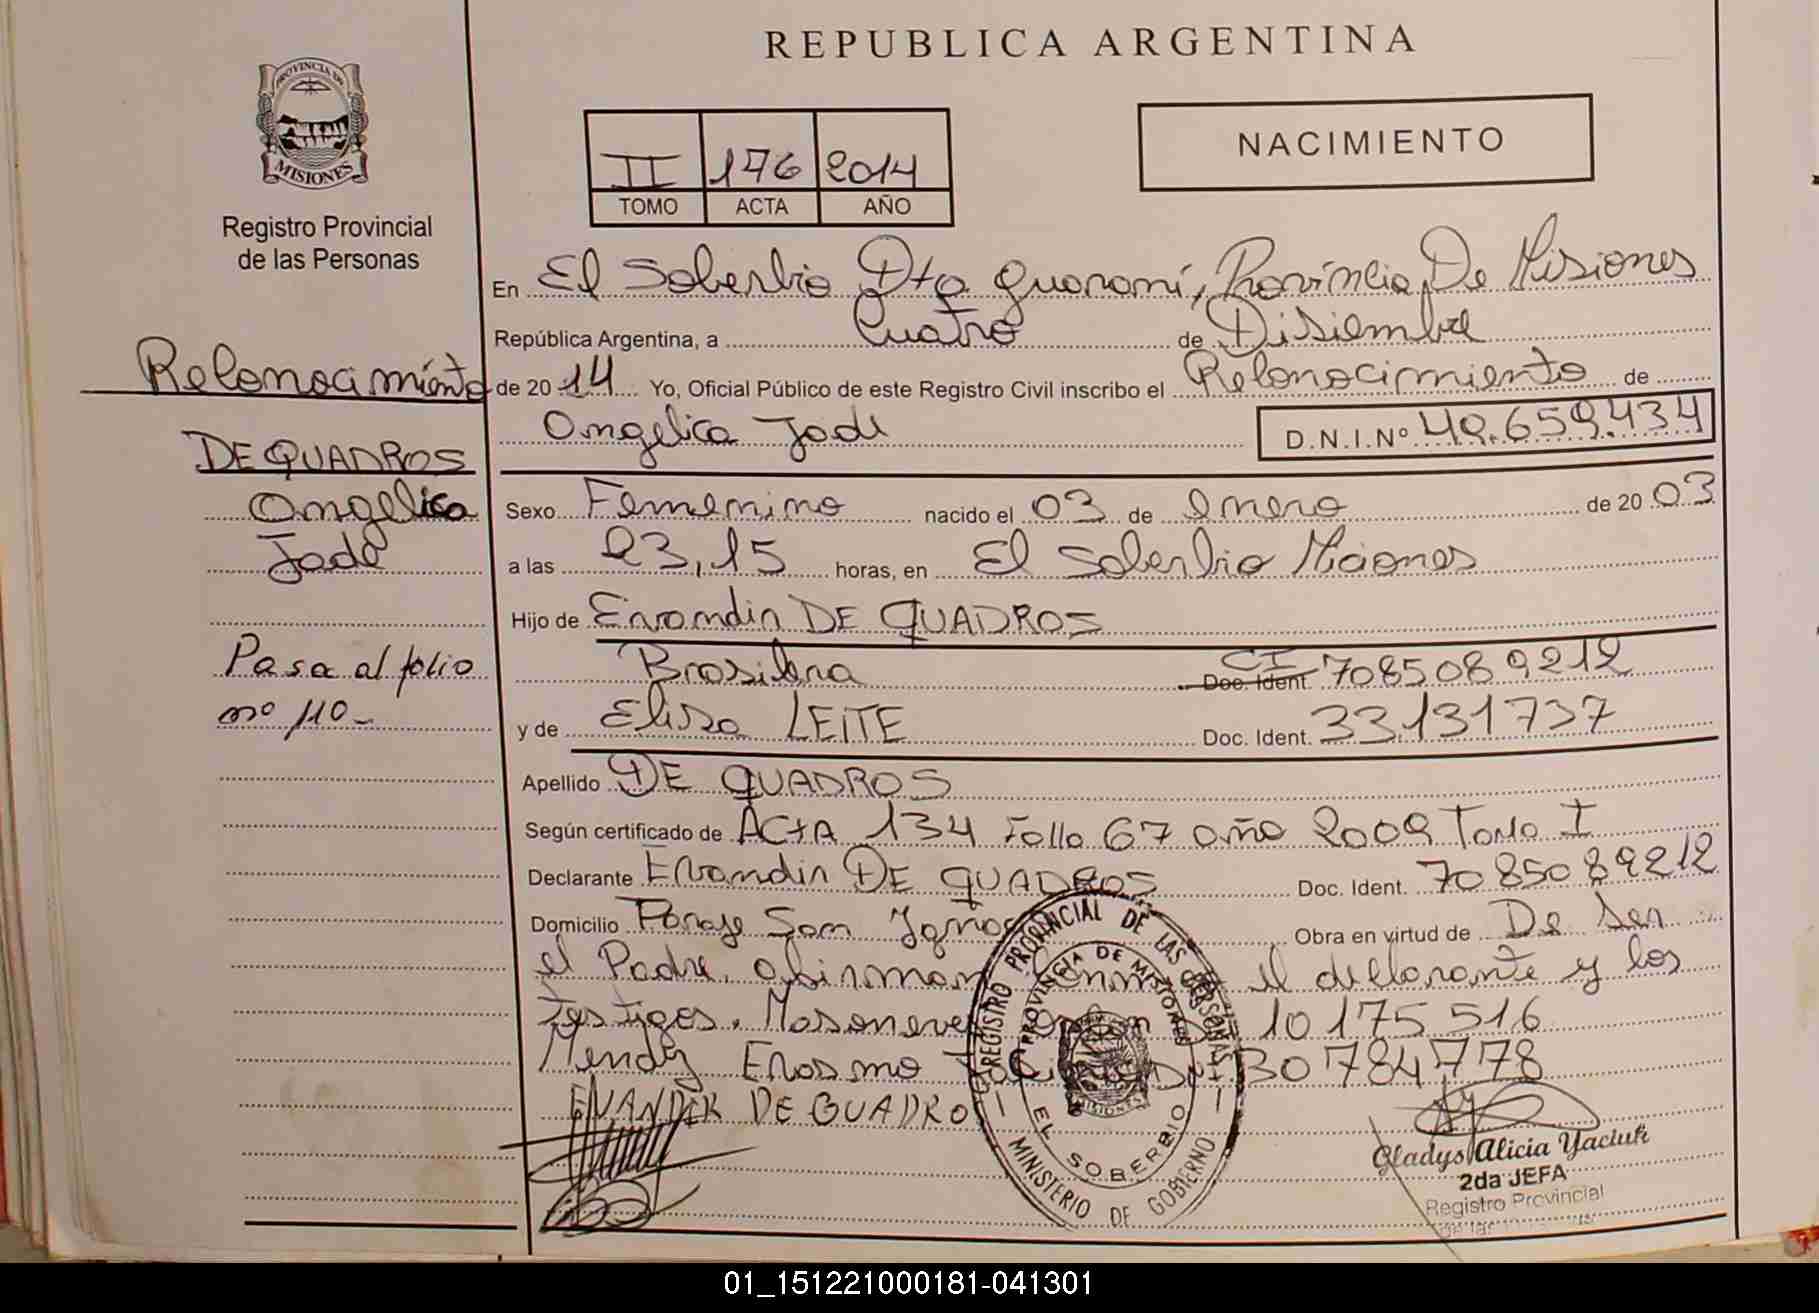 REPUBLICA ARGENTINA
PROVINCIA DE
MISIONES
Registro Provincial
de las Personas
II 176 2014
TOMO ACTA AÑO
NACIMIENTO
En El Soberbio Dto Guaraní, Provincia De Misiones
República Argentina, a Cuatro de Disiembre
de 20 14 Yo, Oficial Público de este Registro Civil inscribo el Reconocimiento de
Angelica Jade D.N.I.Nº 49.659.434
Sexo Femenino nacido el 03 de enero de 20 03
a las 23,15 horas, en El Soberbio Miciones
Hijo de Evandir DE QUADROS
Brasilera CI Doc. Ident. 7085089212
y de Elisa LEITE Doc. Ident. 33131737
Apellido DE QUADROS
Según certificado de ACtA 134 Folio 67 año 2009 Tomo I
Declarante Evandir DE QUADROS Doc. Ident. 7085089212
Domicilio Paraje San Obra en virtud de De Ser
el Padre. el declarante y los
Testigos. 10175516
Mendez Erasmo 30784778
EVANDIR DE QUADRO
Reconocimiento
DE QUADROS
Angelica
Jade
Pasa al folio
nº 110-
REGISTRO PROVINCIAL DE LAS PERSONAS
PROVINCIA DE MISIONES
EL SOBERBIO
MINISTERIO DE GOBIERNO
Gladys Alicia Yaciuk
2da JEFA
Registro Provincial
01_151221000181-041301